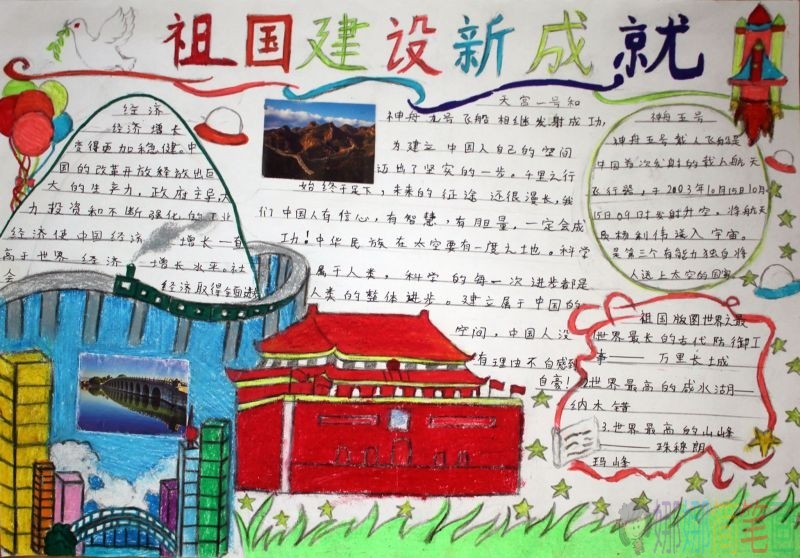 祖国建设新成就
经济
经济增长
变得更加稳健,中
国的改革开放释放出巨
大的生产力,政府主导大
力投资和不断强化的工业
经济使中国经济增长一直
高于世界经济增长水平。社
会经济取得全面进
天宫一号和
神舟九号飞船相继发射成功,
为建立中国人自己的空间
迈出了坚实的一步。千里之行
始终于足下,未来的征途还很漫长,我
们中国人有信心,有智慧,有胆量,一定会成
功!中华民族在太空要有一度之地。科学
属于人类,科学的每一次进步都是
人类的整体进步。建立属于中国的
空间,中国人没
有理由不自感到
自豪!
神舟五号
神舟五号载人飞船是
中国首次发射的载人航天
飞行器,于2003年10月15日10月
15日09时发射升空,将航天
员杨利伟送入宇宙,
是第三个有能力独自将
人送上太空的国家
祖国版图世界之最
世界最长的古代防御工
事——万里长城
2世界最高的咸水湖——
纳木错
3.世界最高的山峰
——珠穆朗
玛峰